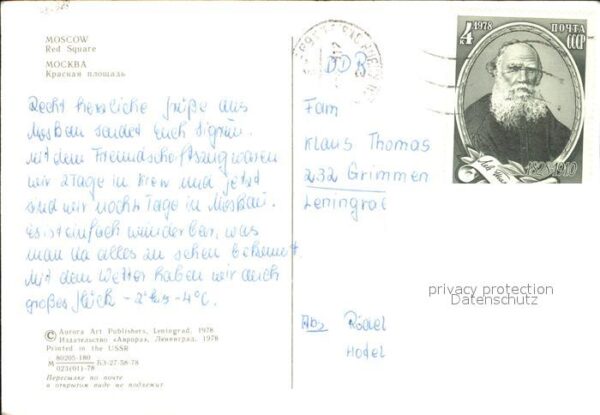 MOSCOW
Red Square
МОСКВА
Красная площадь
Recht herzliche Grüße aus
Moskau sendet Euch Sigrun.
Mit dem Freundschaftszug waren
wir 2 Tage in Kiew und jetzt
sind wir noch Tage in Moskau.
Es ist einfach wunderbar, was
man da alles zu sehen bekommt.
Mit dem Wetter haben wir auch
großes Glück - 2° bis -4°C.
© Aurora Art Publishers, Leningrad, 1978
Издательство «Аврора», Ленинград, 1978
Printed in the USSR
М 80205-180 БЗ-27-58-78
023(01)-78
Пересылке по почте
в открытом виде не подлежит
DDR
Fam
Klaus Thomas
232 Grimmen
Abs Rödel
4 к
1978
ПОЧТА
СССР
1828-1910
privacy protection
Datenschutz